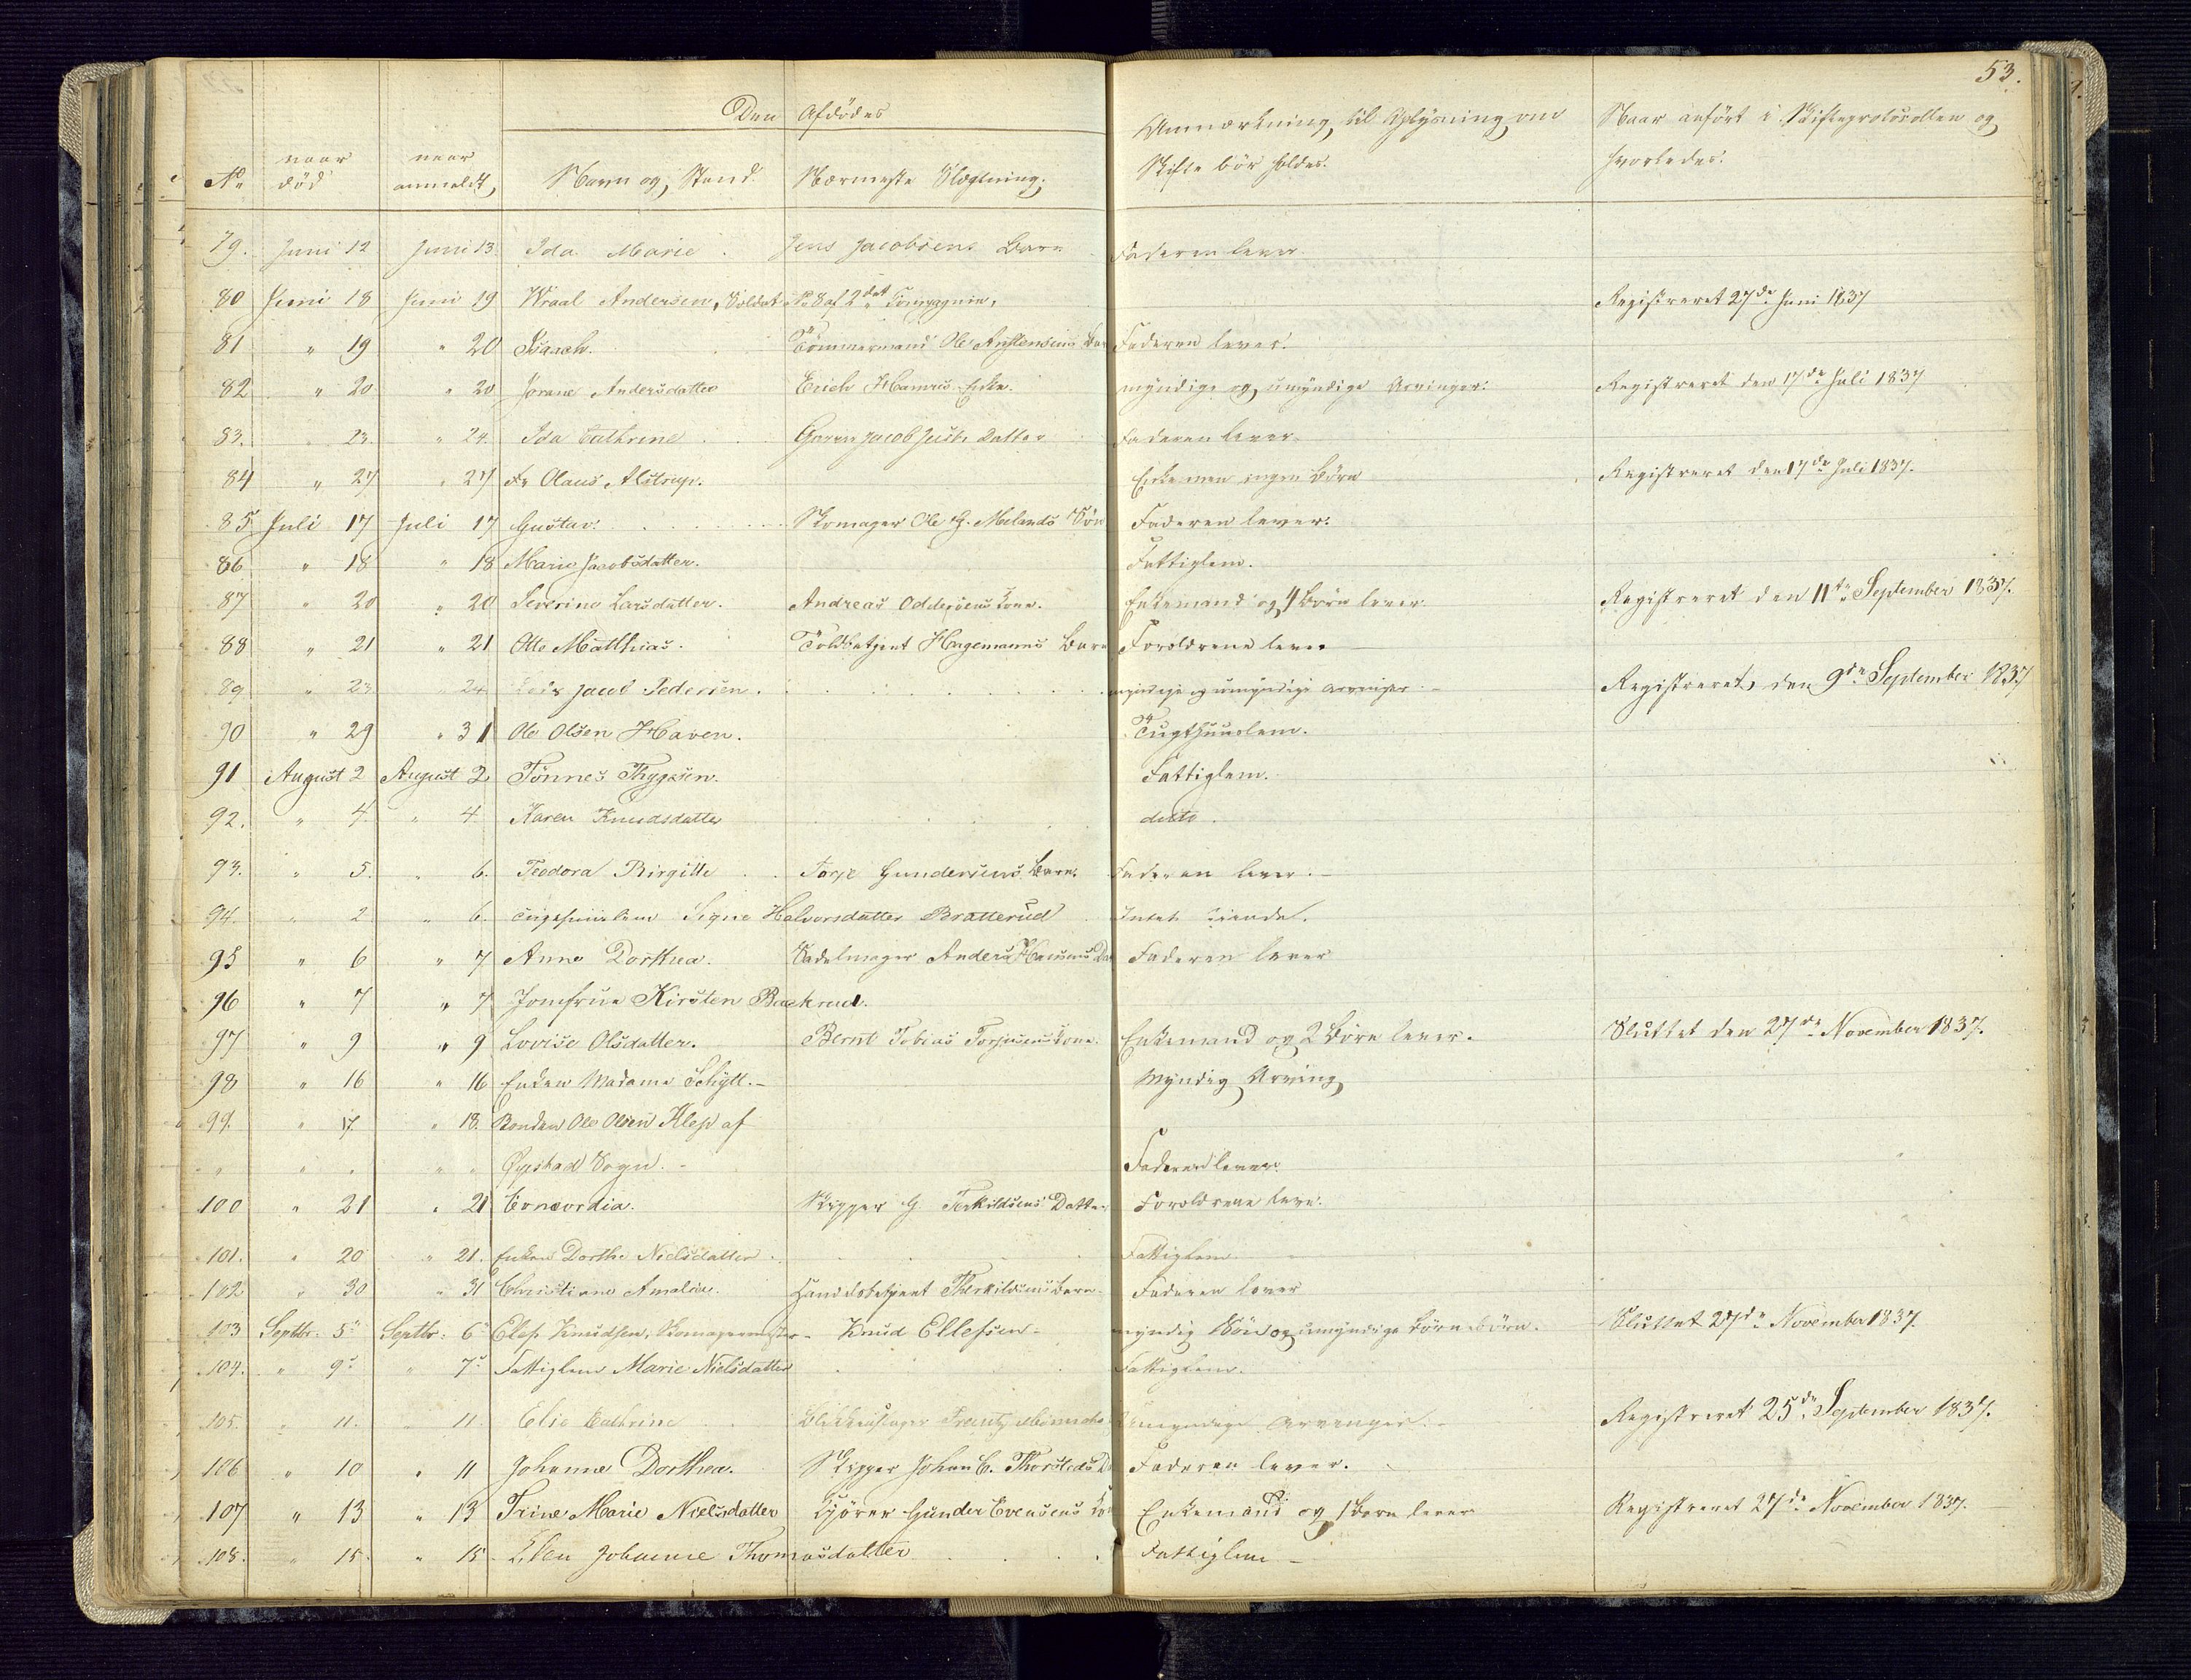 53.
Den Afdödes
Anmærkning til Oplysning om Skifte bör holdes.
Naar anfört i Skifteprotocollen og hvorledes.
No naar död naar anmeldt, Navn og Stand. Nærmeste Slægtning.
79. Juni 12 Juni 13 Ida Marie Jens Jacobsens Barn Faderen lever.
80 Juni 18 Juni 19 Andersen, Soldat No 8 af 2det Compagnie, Registreret 27de Juni 1837
81 " 19 " 20 Isaach. Tömmermand Ole Faderen lever.
82 " 20 " 20 Jorane Andersdatter Erich Enke. myndige og umyndige Arvinger. Registreret den 17de Juli 1837
83. 23. " 24 Ida Cathrine Jacob datter Faderen lever.
84 " 27 " 27 Olaus Alstrup. Enke men ingen Börn Registreret den 17de Juli 1837.
85 Juli 17 Juli 17 Gustav. Skomager Ole G. Mælands Sön Faderen lever.
86 " 18 " 18 Marie Jacobsdatter. Fattiglem.
87 " 20 " 20 Severine Larsdatter. Andreas Oddersens Kone. Enkemand og 4 Börn lever. Registreret den 11te September 1837.
88 " 21 " 21 Otto Matthias. Toldbetjent Hagemanns Barn Forældrene lever
89 " 23 " 24 Jacob Pedersen. myndige og umyndige arvinger - Registreret den 9de September 1837
90 " 29 " 31 Ole Olsen Haven. Tugthuuslem.
91 August 2 August 2 Tönnes Thygesen. Fattiglem.
92. " 4 " 4 Karen Knudsdatter ditto.
93. " 5. " 6. Teodora Birgitte Torje Gundersens Barn. Faderen lever. -
94. " 2 " 6. Signe Halvorsdatter Bratterud Intet Eiende.
95 " 6 " 7 Anne Dorthea. Sadelmager Anders Hansens Faderen lever
96 " 7 " 7 Jomfrue Kirsten
97 " 9 " 9 Lovise Olsdatter. Bernt Tobias Torjusens Kone. Enkemand og 2 Börn lever. Sluttet den 27de November 1837.
98 " 16 " 16 Enken Madame Schytt. - Myndig Arving
99. " 17. " 18. Bonden Ole Olsen Klep af
" " " " " Sogn. - Faderen lever.
100 " 21 " 21 Concordia. Skipper G Terkildsens Datter Forældrene leve.
101. " 20 " 21. Enken Dorthe Nielsdatter Fattiglem
102 " 30 " 31 Christiane Amalia. betjent Therkildsens Barn. Faderen lever
103 Septbr. 5 Septbr. 6 Elef Knudsen, Skomagermester - Knud Ellefsen - myndig Sön og umyndige Börne Börn. Sluttet 27de November 1837.
104. " 9 " 7 Fattiglem Marie Nielsdatter Fattiglem.
105. " 11. " 11. Elie Cathrine Blikkenslager Frantz Umyndige Arvinger. - Registreret 25de September 1837.
106 " 10 " 11 Johanne Dorthea. Skipper Johan C. Thorsteds Faderen lever.
107 " 13 " 13 Trine Marie Nielsdatter Gunder Evensens Enkemand og 1 Barn lever Registreret 27de November 1837.
108. " 15. " 15 - Ellen Johanne Thomasdatter Fattiglem -